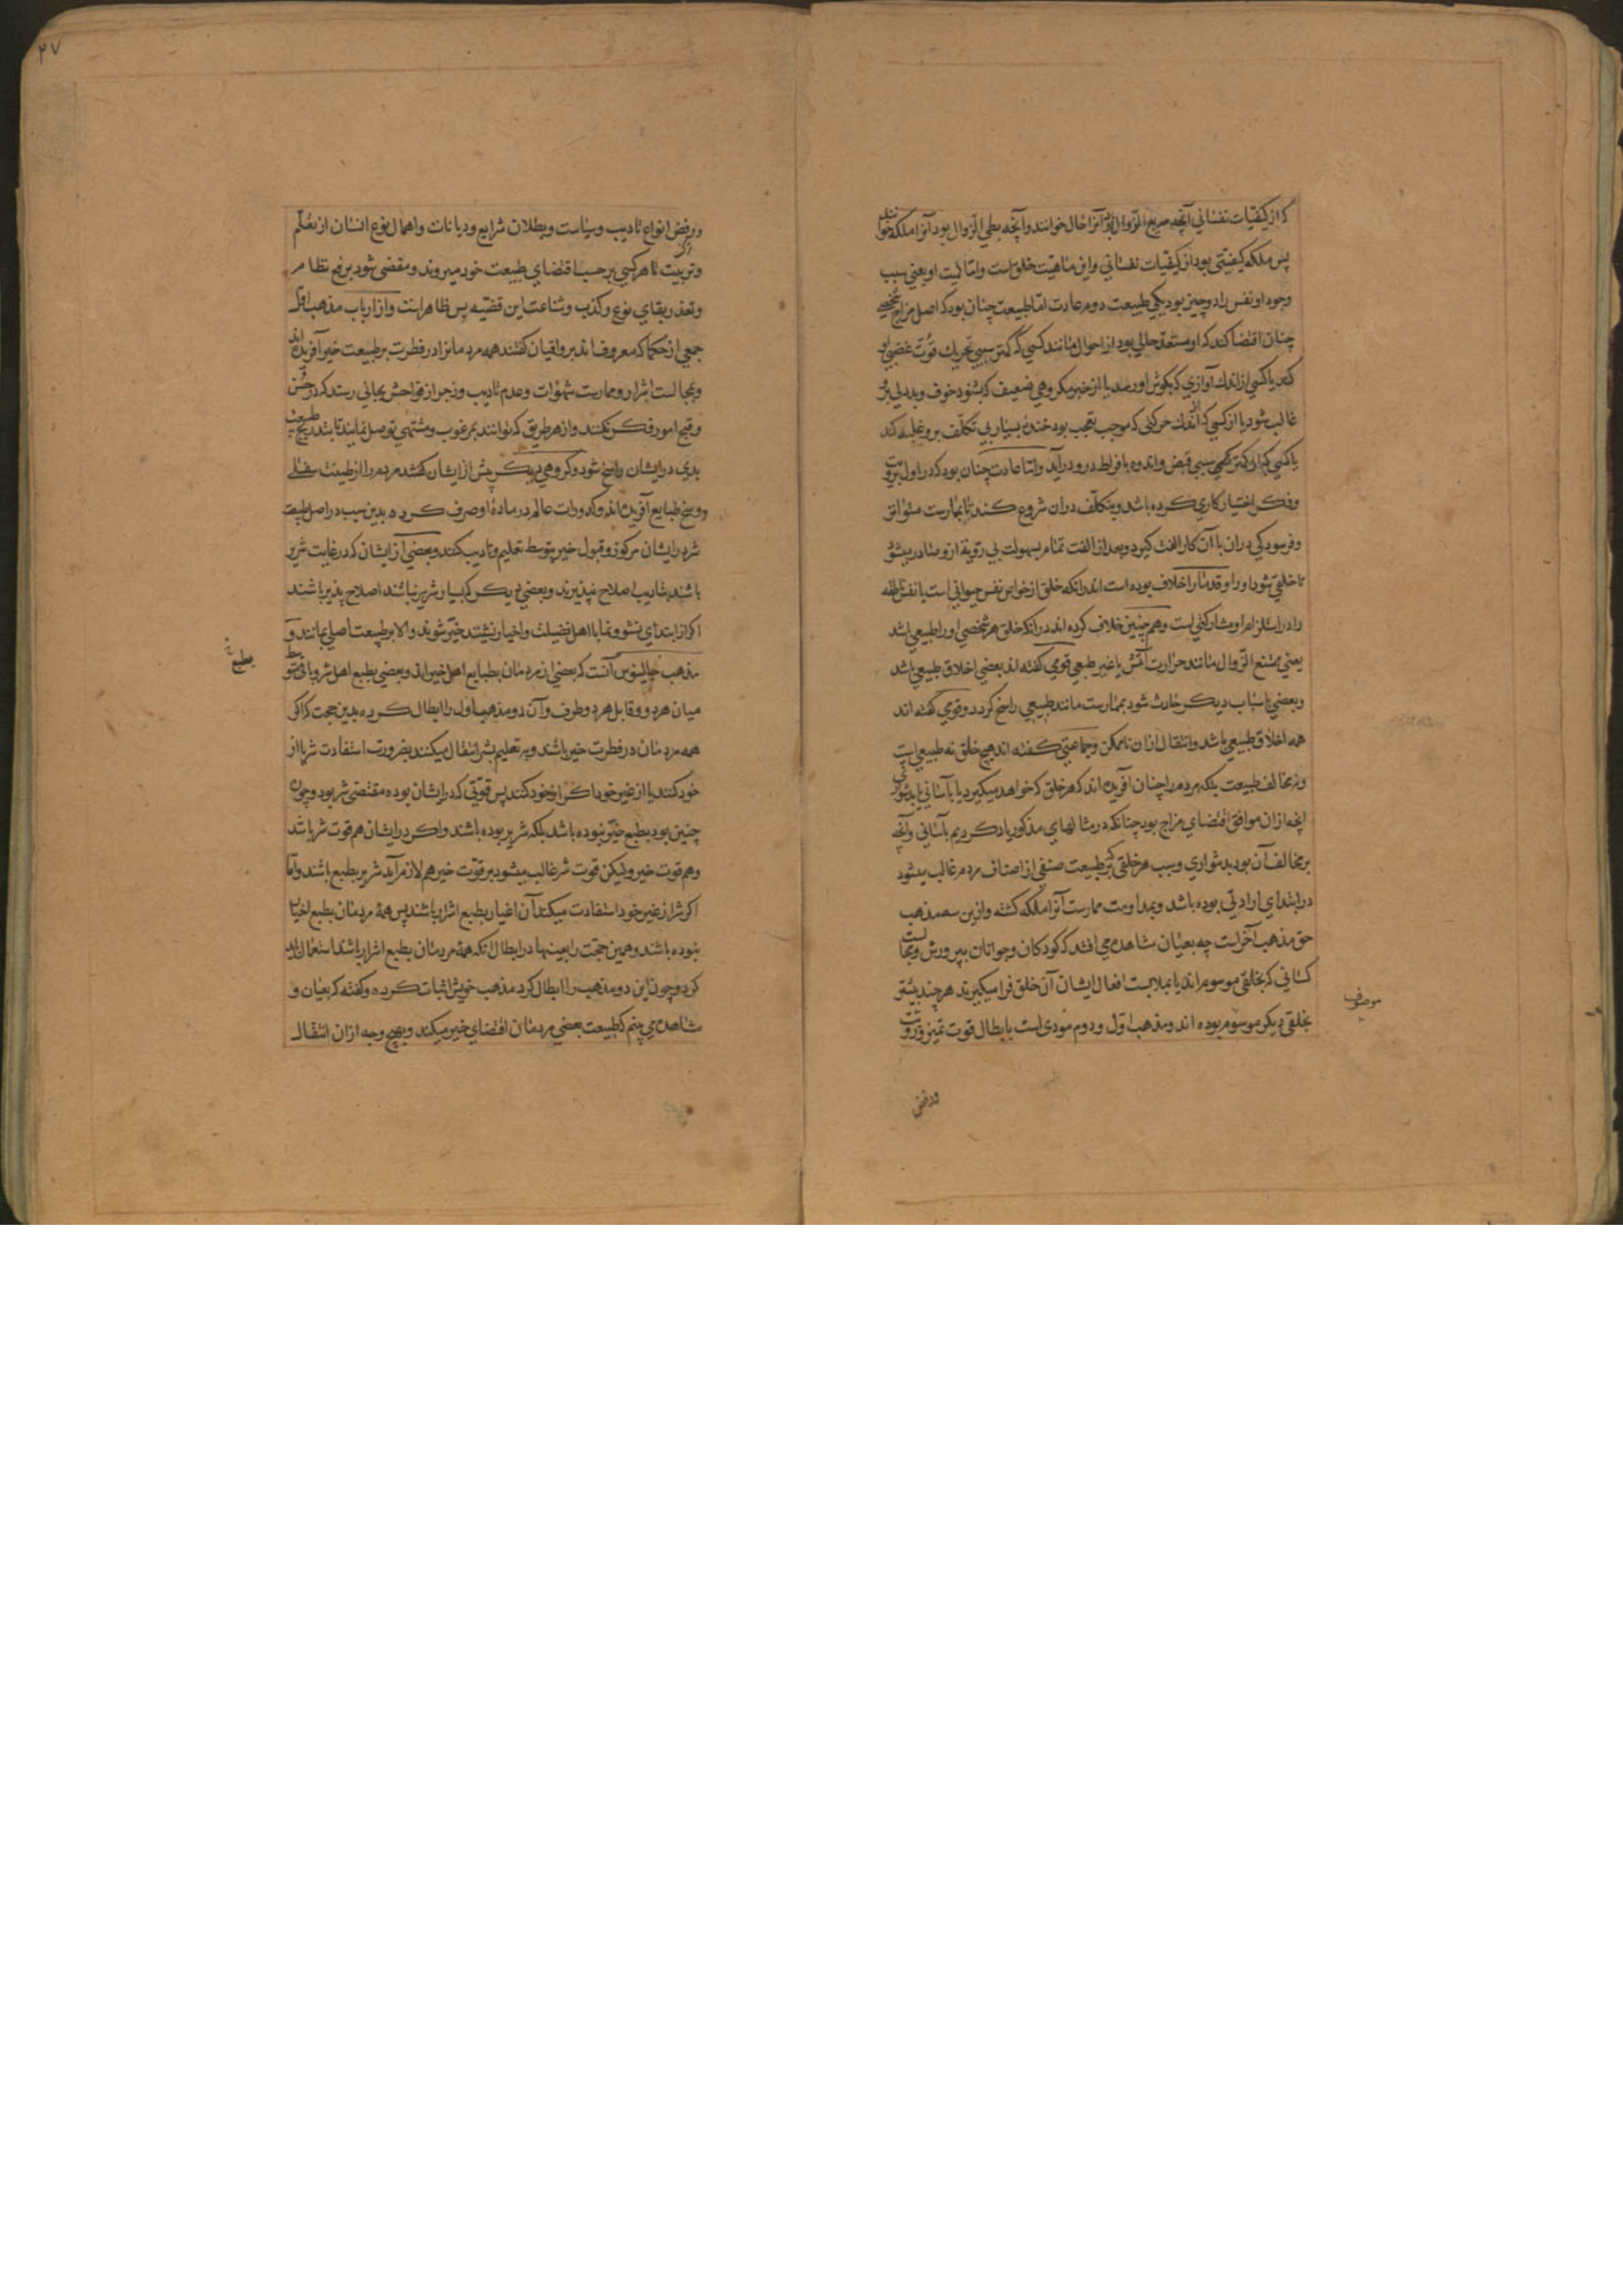 که از کیفیات نفسانی آنچه سریع الزوال بود آنرا حال خوانند و آنچه بطی الزوال بود آنرا ملکه خوانند
پس ملکه کیفیتی بود از کیفیات نفسانی و این ماهیت خلق است و اما لمیت او یعنی سبب
وجود او نفس را دو چیز بود یکی طبیعت دوم عادت اما طبیعت چنان بود که اصل مزاج شخصی
چنان اقتضا کند که او مستعد حالی بود از احوال مانند کسی که کمتر سببی تحریک قوت غضبی او
کند یا کسی از اندک آوازی که بکوش او رسد یا از خبر مکروهی ضعیف که بشنود خوف و بددلی برو
غالب شود یا از کسی که اندک حرکتی که موجب تعجب بود خنده بسیار بی تکلف برو غلبه کند
یا کسی که از کمتر سببی قبض و اندوه بافراط درو در آید و اما عادت چنان بود که در اول برویت
و فکر اختیار کاری کرده باشد و بتکلف دران شروع کند تا بممارست متواتر
و فرسودکی دران با آن کار الفت کیرد و بعد از الفت تمام بسهولت بی رویة ازو صادر میشود
تا خلقی شود او را و قدما را خلاف بوده است اندرانکه خلق از خواص نفس حیوانی است یا نفس ناطقه
را در استلزام او مشارکتی است و همچنین خلاف کرده اند درانکه خلق هر شخصی او را طبیعی باشد
یعنی ممتنع الزوال مانند حرارت آتش یا غیر طبعی قومی کفته اند بعضی اخلاق طبیعی باشد
و بعضی باسباب دیکر حادث شود بممارست مانند طبیعی راسخ کردد و قومی کفته اند
همه اخلاق طبیعی باشد و انتقال ازان ناممکن و جماعتی کفته اند هیچ خلق نه طبیعی است
و نه مخالف طبیعت بلکه مردم را چنان آفریده اند که هر خلق که خواهد میکیرد یا بآسانی یا بدشواری
انچه ازان موافق اقتضای مزاج بود چنانکه در مثالهای مذکور یاد کردیم بآسانی و آنچه
بر مخالف آن بود بدشواری و سبب هر خلقی که بر طبیعت صنفی از اصناف مردم غالب میشود
در ابتدای ارادتی بوده باشد و بمداومت ممارست آنرا ملکه کشته و ازین سه مذهب
حق مذهب آخر است چه بعیان مشاهده می افتد که کودکان و جوانان بپرورش و مجالست
کسانی که بخلقی موسوم اند یا بملابست افعال ایشان آن خلق فرا میکیرند هر چند پیشتر
بخلقی دیکر موسوم بوده اند و مذهب اول و دوم مودی است بابطال قوت تمیز و رویت
موصوف
ورفض
۲۷
و رفض انواع تادیب و سیاست و بطلان شرایع و دیانات و اهمال نوع انسان از تعلم
و تربیت تا هر کسی بر حسب اقتضای طبیعت خود میروند و مفضی شود برفع نظام
و تعذر بقای نوع و کذب و شناعت این قضیه بس ظاهر است و از ارباب مذهب اول
جمعی از حکما که معروف اند برواقیان کفتند همه مردمانرا در فطرت بر طبیعت خیر آفریده اند
و بمجالست اشرار و ممارست شهوات و عدم تادیب و زجر از فواحش بجائی رسند که در حسن
و قبح امور فکر نکنند و از هر طریق که توانند بمرغوب و مشتهی توصل نمایند تا بتدریج طبیعت
بدی در ایشان راسخ شود و کروهی دیکر پیش از ایشان کفتند مردم را از طینت سفلی
و وسخ طبایع آفریده اند و کدورات عالم در ماده او صرف کرده بدین سبب در اصل طبیعت
شر در ایشان مرکوز و قبول خیر بتوسط تعلیم و تادیب کنند و بعضی از ایشان که در غایت شر
باشند بتادیب اصلاح نپذیرند و بعضی دیکر که بسیار شریر نباشند اصلاح پذیر باشند
اکر از ابتدای نشو و نما با اهل فضیلت و اخیار نشینند خیر شوند و الا بر طبیعت اصلی بمانند و
مذهب جالینوس آنست که بعضی از مردمان بطبایع اهل خیر اند و بعضی بطبع اهل شر و باقی متوسط
بطبع
میان هر دو و قابل هر دو طرف و آن دو مذهب اول را ابطال کرده بدین حجت که اکر
همه مردمان در فطرت خیر باشند و بتعلیم بشر انتقال میکنند بضرورت استفادت شر یا از
خود کنند یا از غیر خود اکر از خود کنند پس قوتی که در ایشان بوده مقتضی شر بود و چون
چنین بود بطبع خیر نبوده باشد بلکه شریر بوده باشند و اکر در ایشان هم قوت شر باشد
و هم قوت خیر و لیکن قوت شر غالب میشود بر قوت خیر هم لازم آید شریر بطبع باشند و اما
اکر شر از غیر خود استفادت میکند آن اغیار بطبع اشرار باشند پس همه مردمان بطبع اخیار
نبوده باشند و همین حجت را بعینها در ابطال انکه همه مردمان بطبع اشرار باشند استعمال
کرد و چون این دو مذهب را ابطال کرد مذهب خویش اثبات کرده و کفته که بعیان و
مشاهده می بینم که طبیعت بعضی مردمان اقتضای خیر میکند و بهیچ وجه ازان انتقال